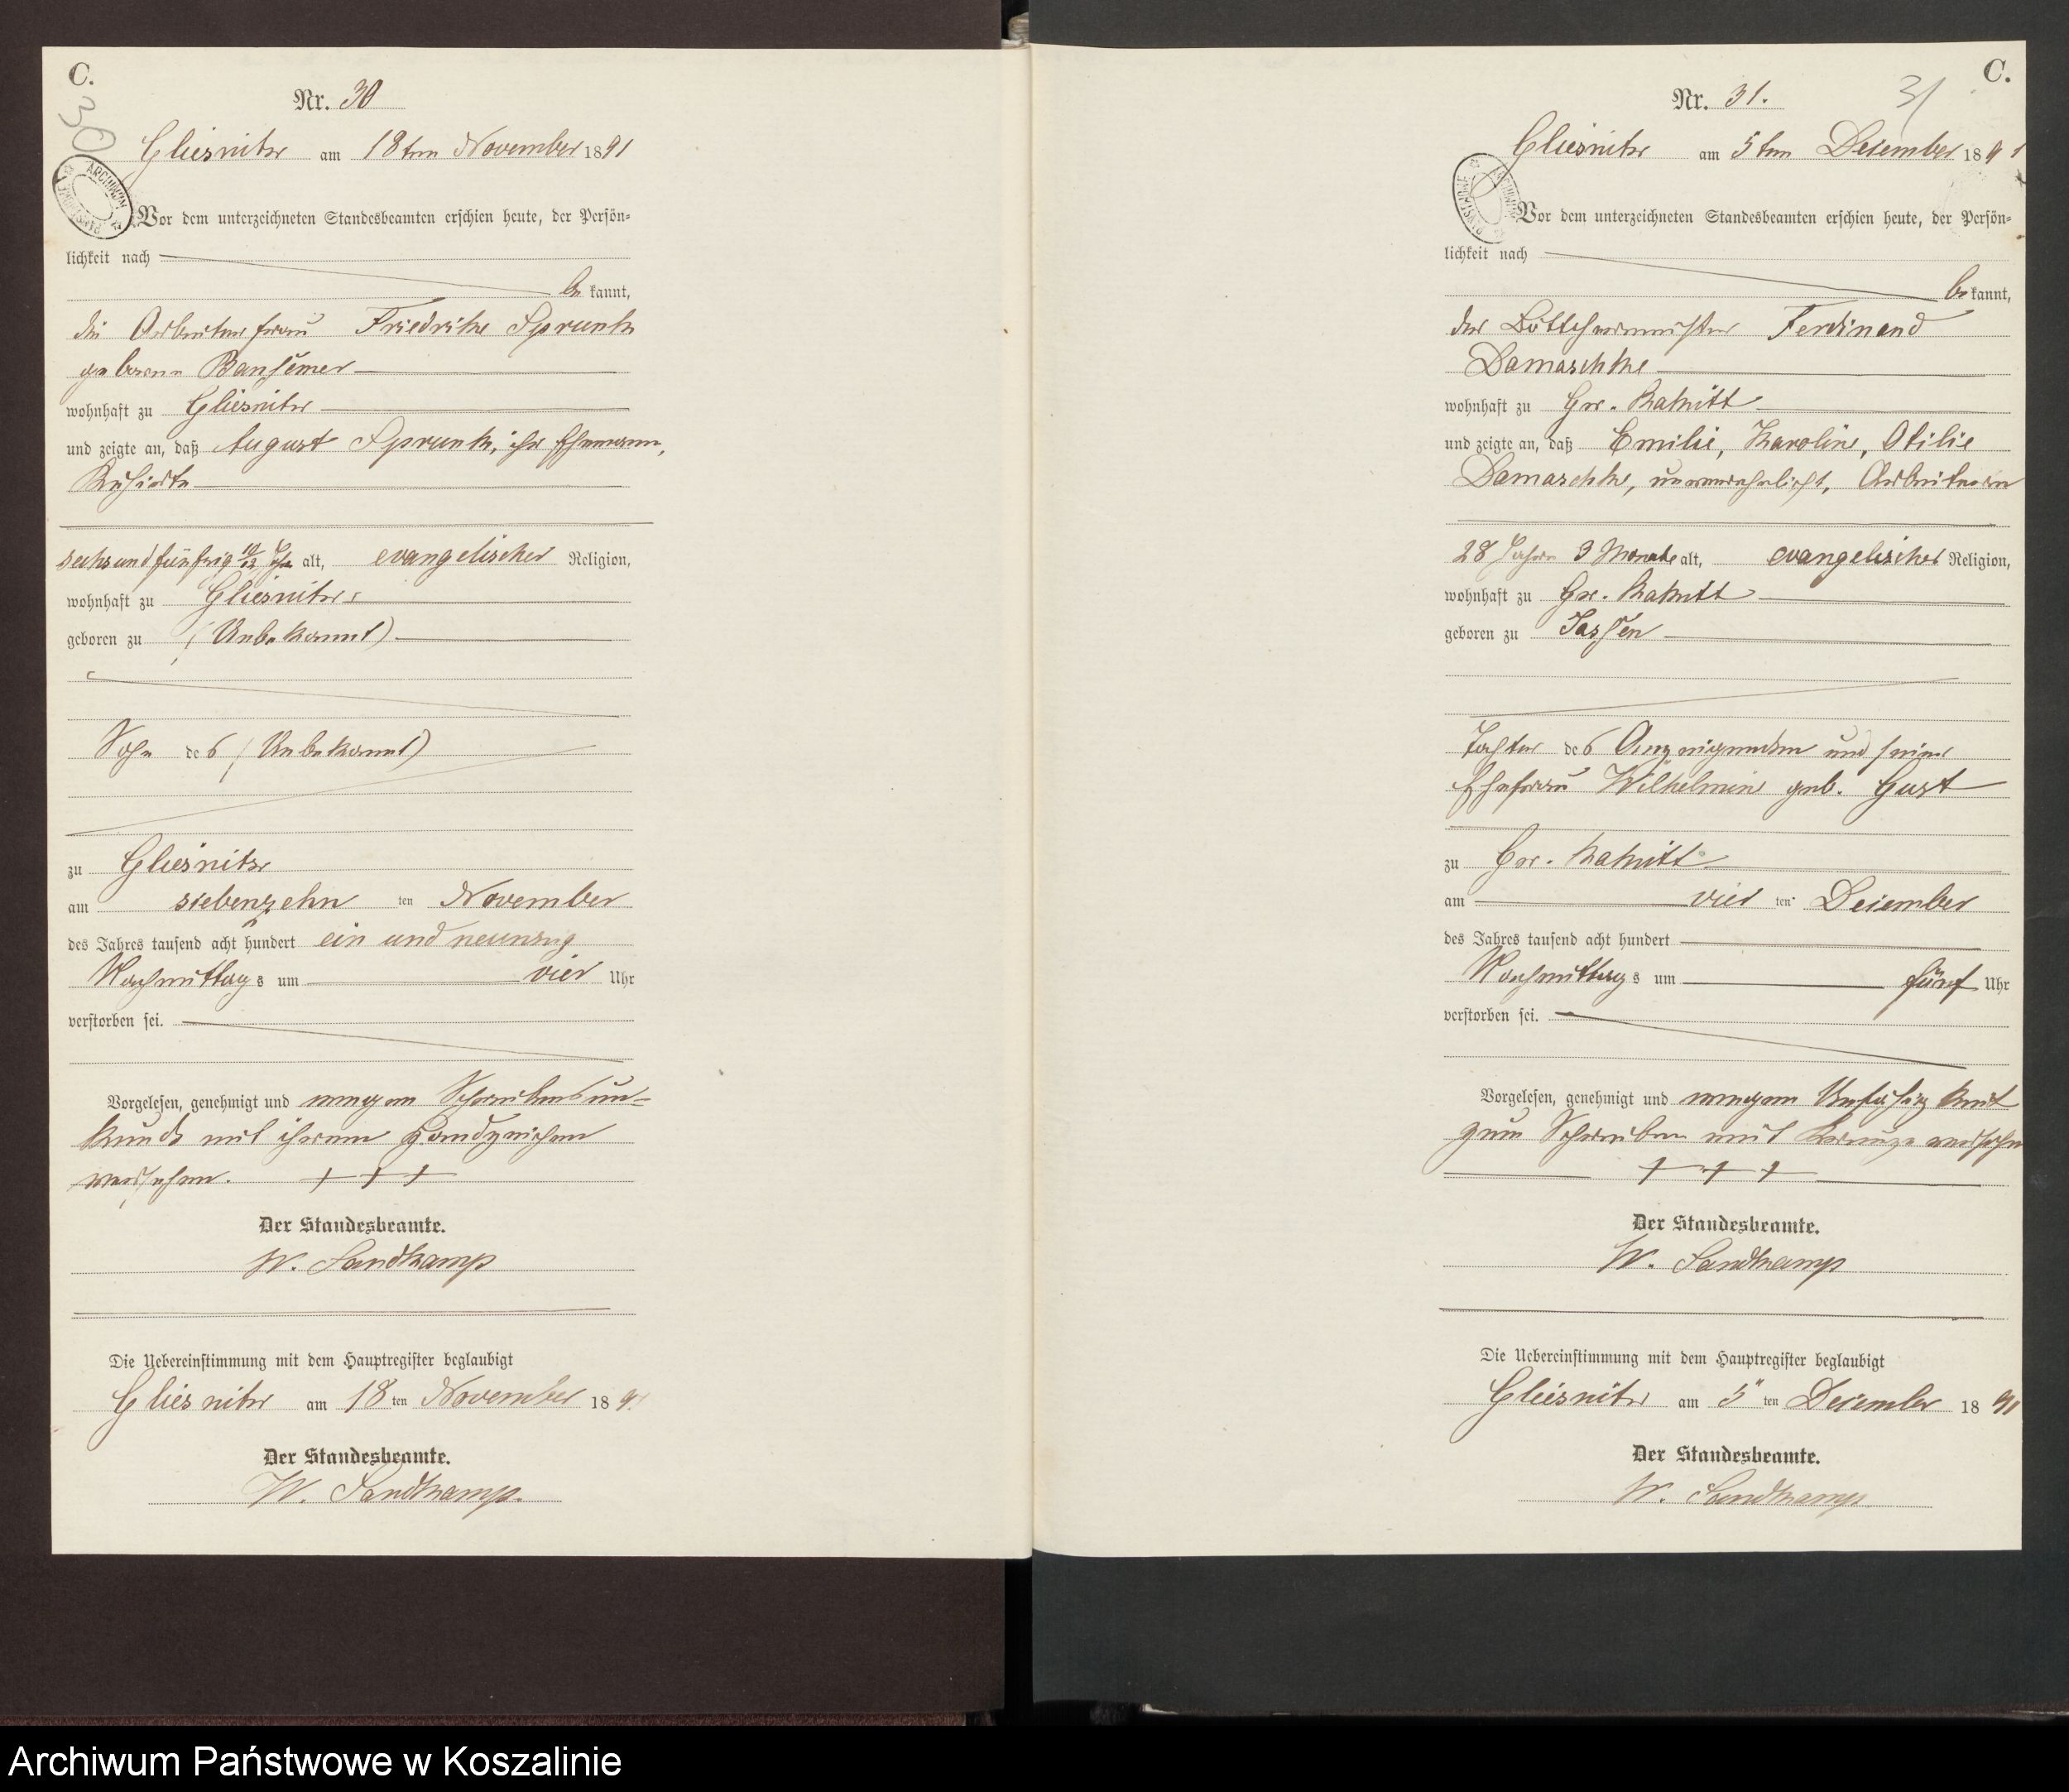 C.
Nr. 30
30
Gliesnitz am 18ten November 1891
ARCHIWUM PAŃSTWOWE
Vor dem unterzeichneten Standesbeamten erschien heute, der Persön=
lichkeit nach
be kannt,
die Arbeiterfrau Friedrike Sprunk
geborene Bansemer
wohnhaft zu Gliesnitz
und zeigte an, daß August Sprunk, ihr Ehemann,
Kuhhirte
sechsundfünfzig 10/12 Jhr alt, evangelischer Religion,
wohnhaft zu Gliesnitz
geboren zu (Unbekannt)
Sohn des (Unbekannt)
zu Gliesnitz
am siebenzehn ten November
des Jahres tausend acht hundert ein und neunzig
Nachmittags um vier Uhr
verstorben sei.
Vorgelesen, genehmigt und wegen Schreibensun-
kunde mit ihrem Handzeichen
versehen. + + +
Der Standesbeamte.
W. Sandkamp
Die Uebereinstimmung mit dem Hauptregister beglaubigt
Gliesnitz am 18ten November 1891
Der Standesbeamte.
W. Sandkamp.
C.
Nr. 31.
31
Gliesnitz am 5ten Dezember 1891
ARCHIWUM PAŃSTWOWE
Vor dem unterzeichneten Standesbeamten erschien heute, der Persön=
lichkeit nach
be kannt,
der Böttchermeister Ferdinand
Damaschke
wohnhaft zu Gr. Rakitt
und zeigte an, daß Emilie, Karoline, Otilie
Damaschke, unverehelicht, Arbeiterin
28 Jahre 3 Monate alt, evangelischer Religion,
wohnhaft zu Gr. Rakitt
geboren zu Jassen
Tochter des Anzeigenden und seiner
Ehefrau Wilhelmine geb. Gust
zu Gr. Rakitt
am vier ten Dezember
des Jahres tausend acht hundert
Nachmittags um fünf Uhr
verstorben sei.
Vorgelesen, genehmigt und wegen Unfähigkeit
zum Schreiben mit Kreuze versehen
+ + +
Der Standesbeamte.
W. Sandkamp
Die Uebereinstimmung mit dem Hauptregister beglaubigt
Gliesnitz am 5ten Dezember 1891
Der Standesbeamte.
W. Sandkamp
Archiwum Państwowe w Koszalinie